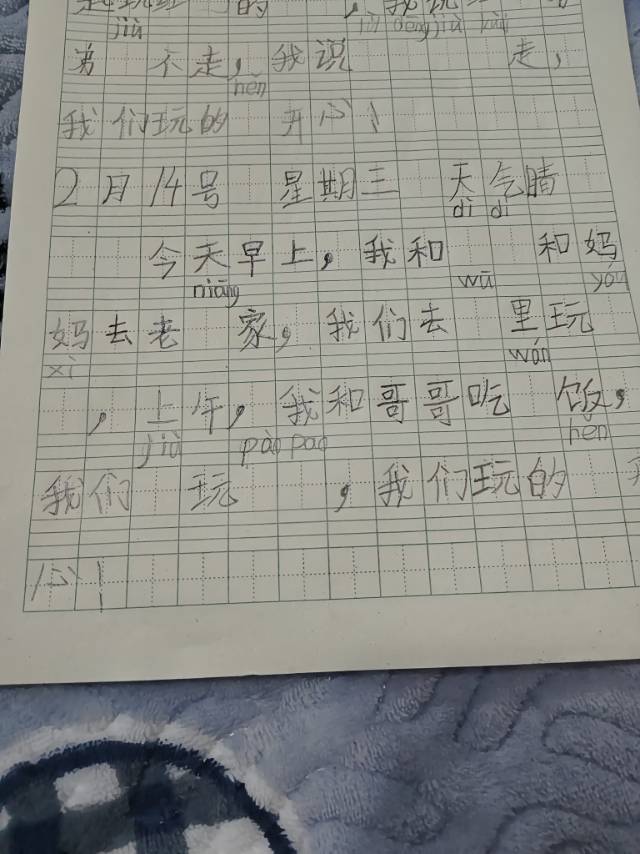 的，我说
jiù
弟 不走，我说 走，
hěn
我们玩的 开心！
2月14号 星期三 天气晴
dì di
今天早上，我和 和妈
niāng wū yóu
妈去老 家，我们去 里玩
xì wán
，上午，我和哥哥吃 饭，
jiù pào pao hěn
我们 玩 ，我们玩的 开
心！